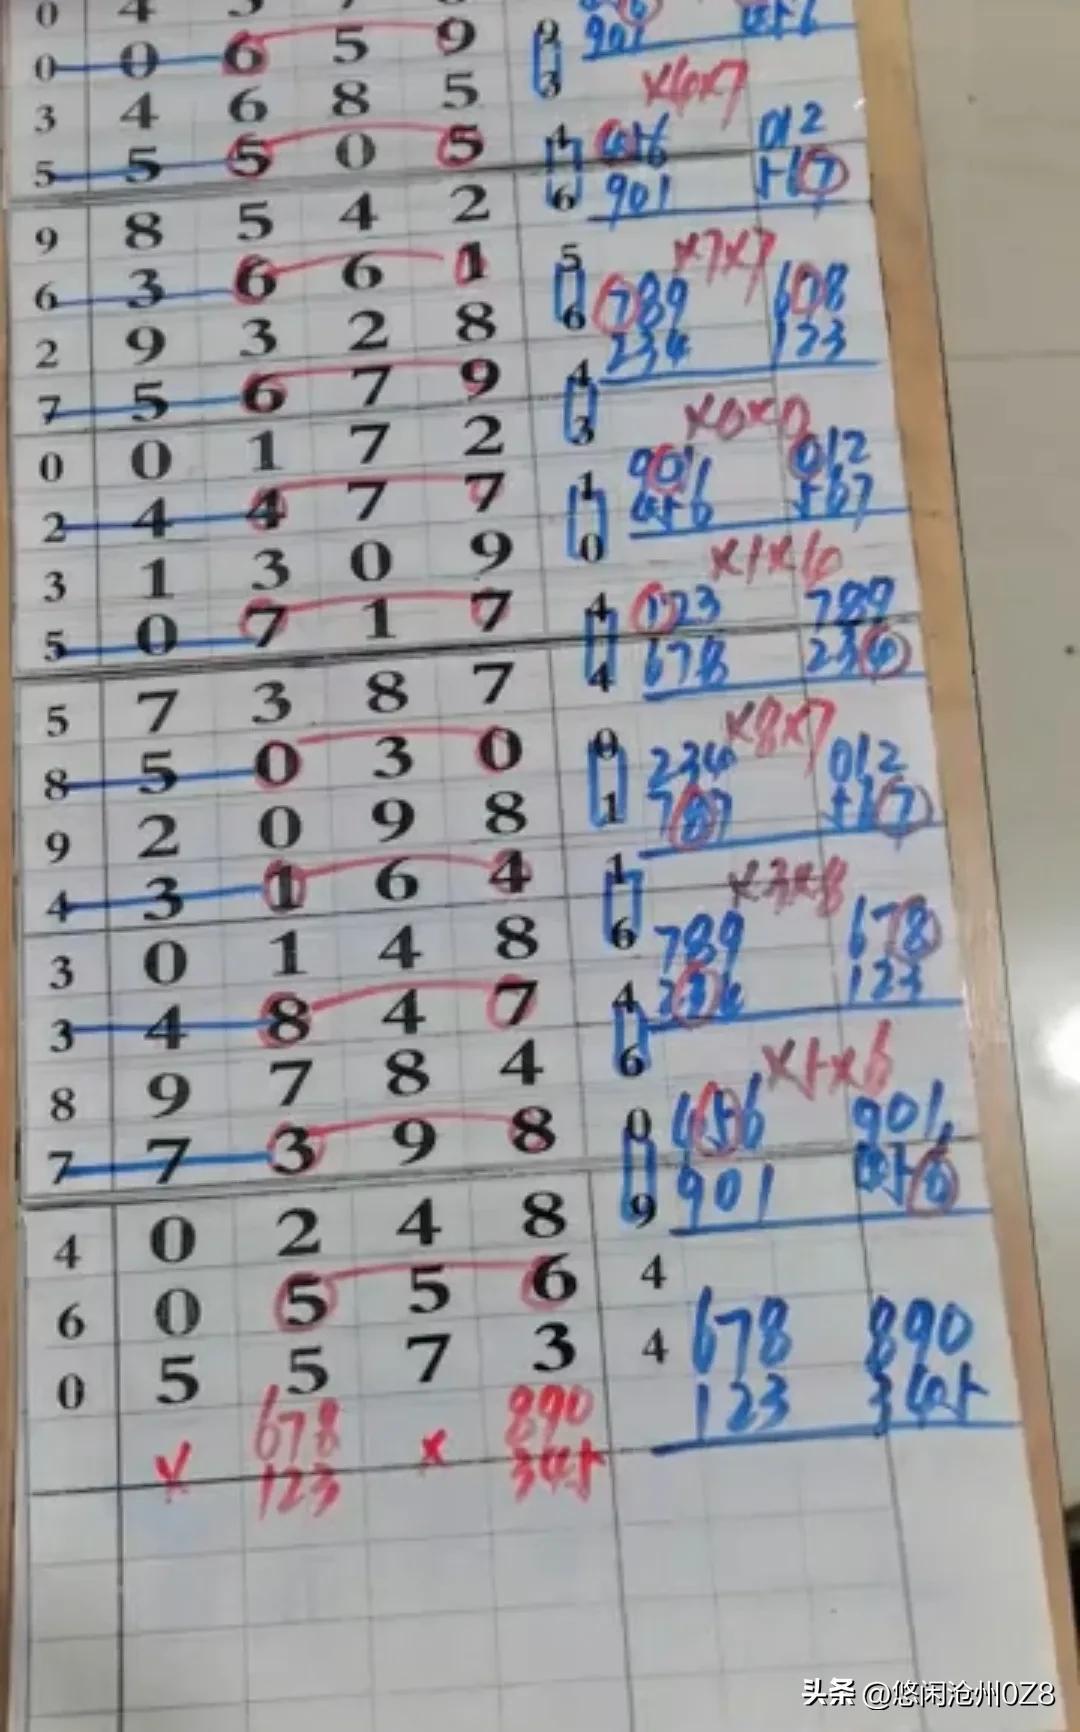 0 0 6 5 9 0 901
3 4 6 8 5 3 ×6×7
5 5 5 0 5 4 456 012
6 901 567
9 8 5 4 2
×7×7
6 3 6 6 1 5 789 678
2 9 3 2 8 6 234 123
7 5 6 7 9 4
0 0 1 7 2 3 ×0×0
901 012
2 4 4 7 7 1 456 567
3 1 3 0 9 0 ×1×4
5 0 7 1 7 4 123 789
5 7 3 8 7 4 678 234
×8×7
8 5 0 3 0 0 234 012
9 2 0 9 8 1 789 567
4 3 1 6 4 1 ×3×8
3 0 1 4 8 6 789 678
3 4 8 4 7 4 234 123
8 9 7 8 4 6 ×5×6
7 7 3 9 8 0 456 901
4 0 2 4 8 9 901 456
6 0 5 5 6 4
0 5 5 7 3 4 678 890
123 345
× 678 × 890
123 345
头条 @悠闲沧州0Z8